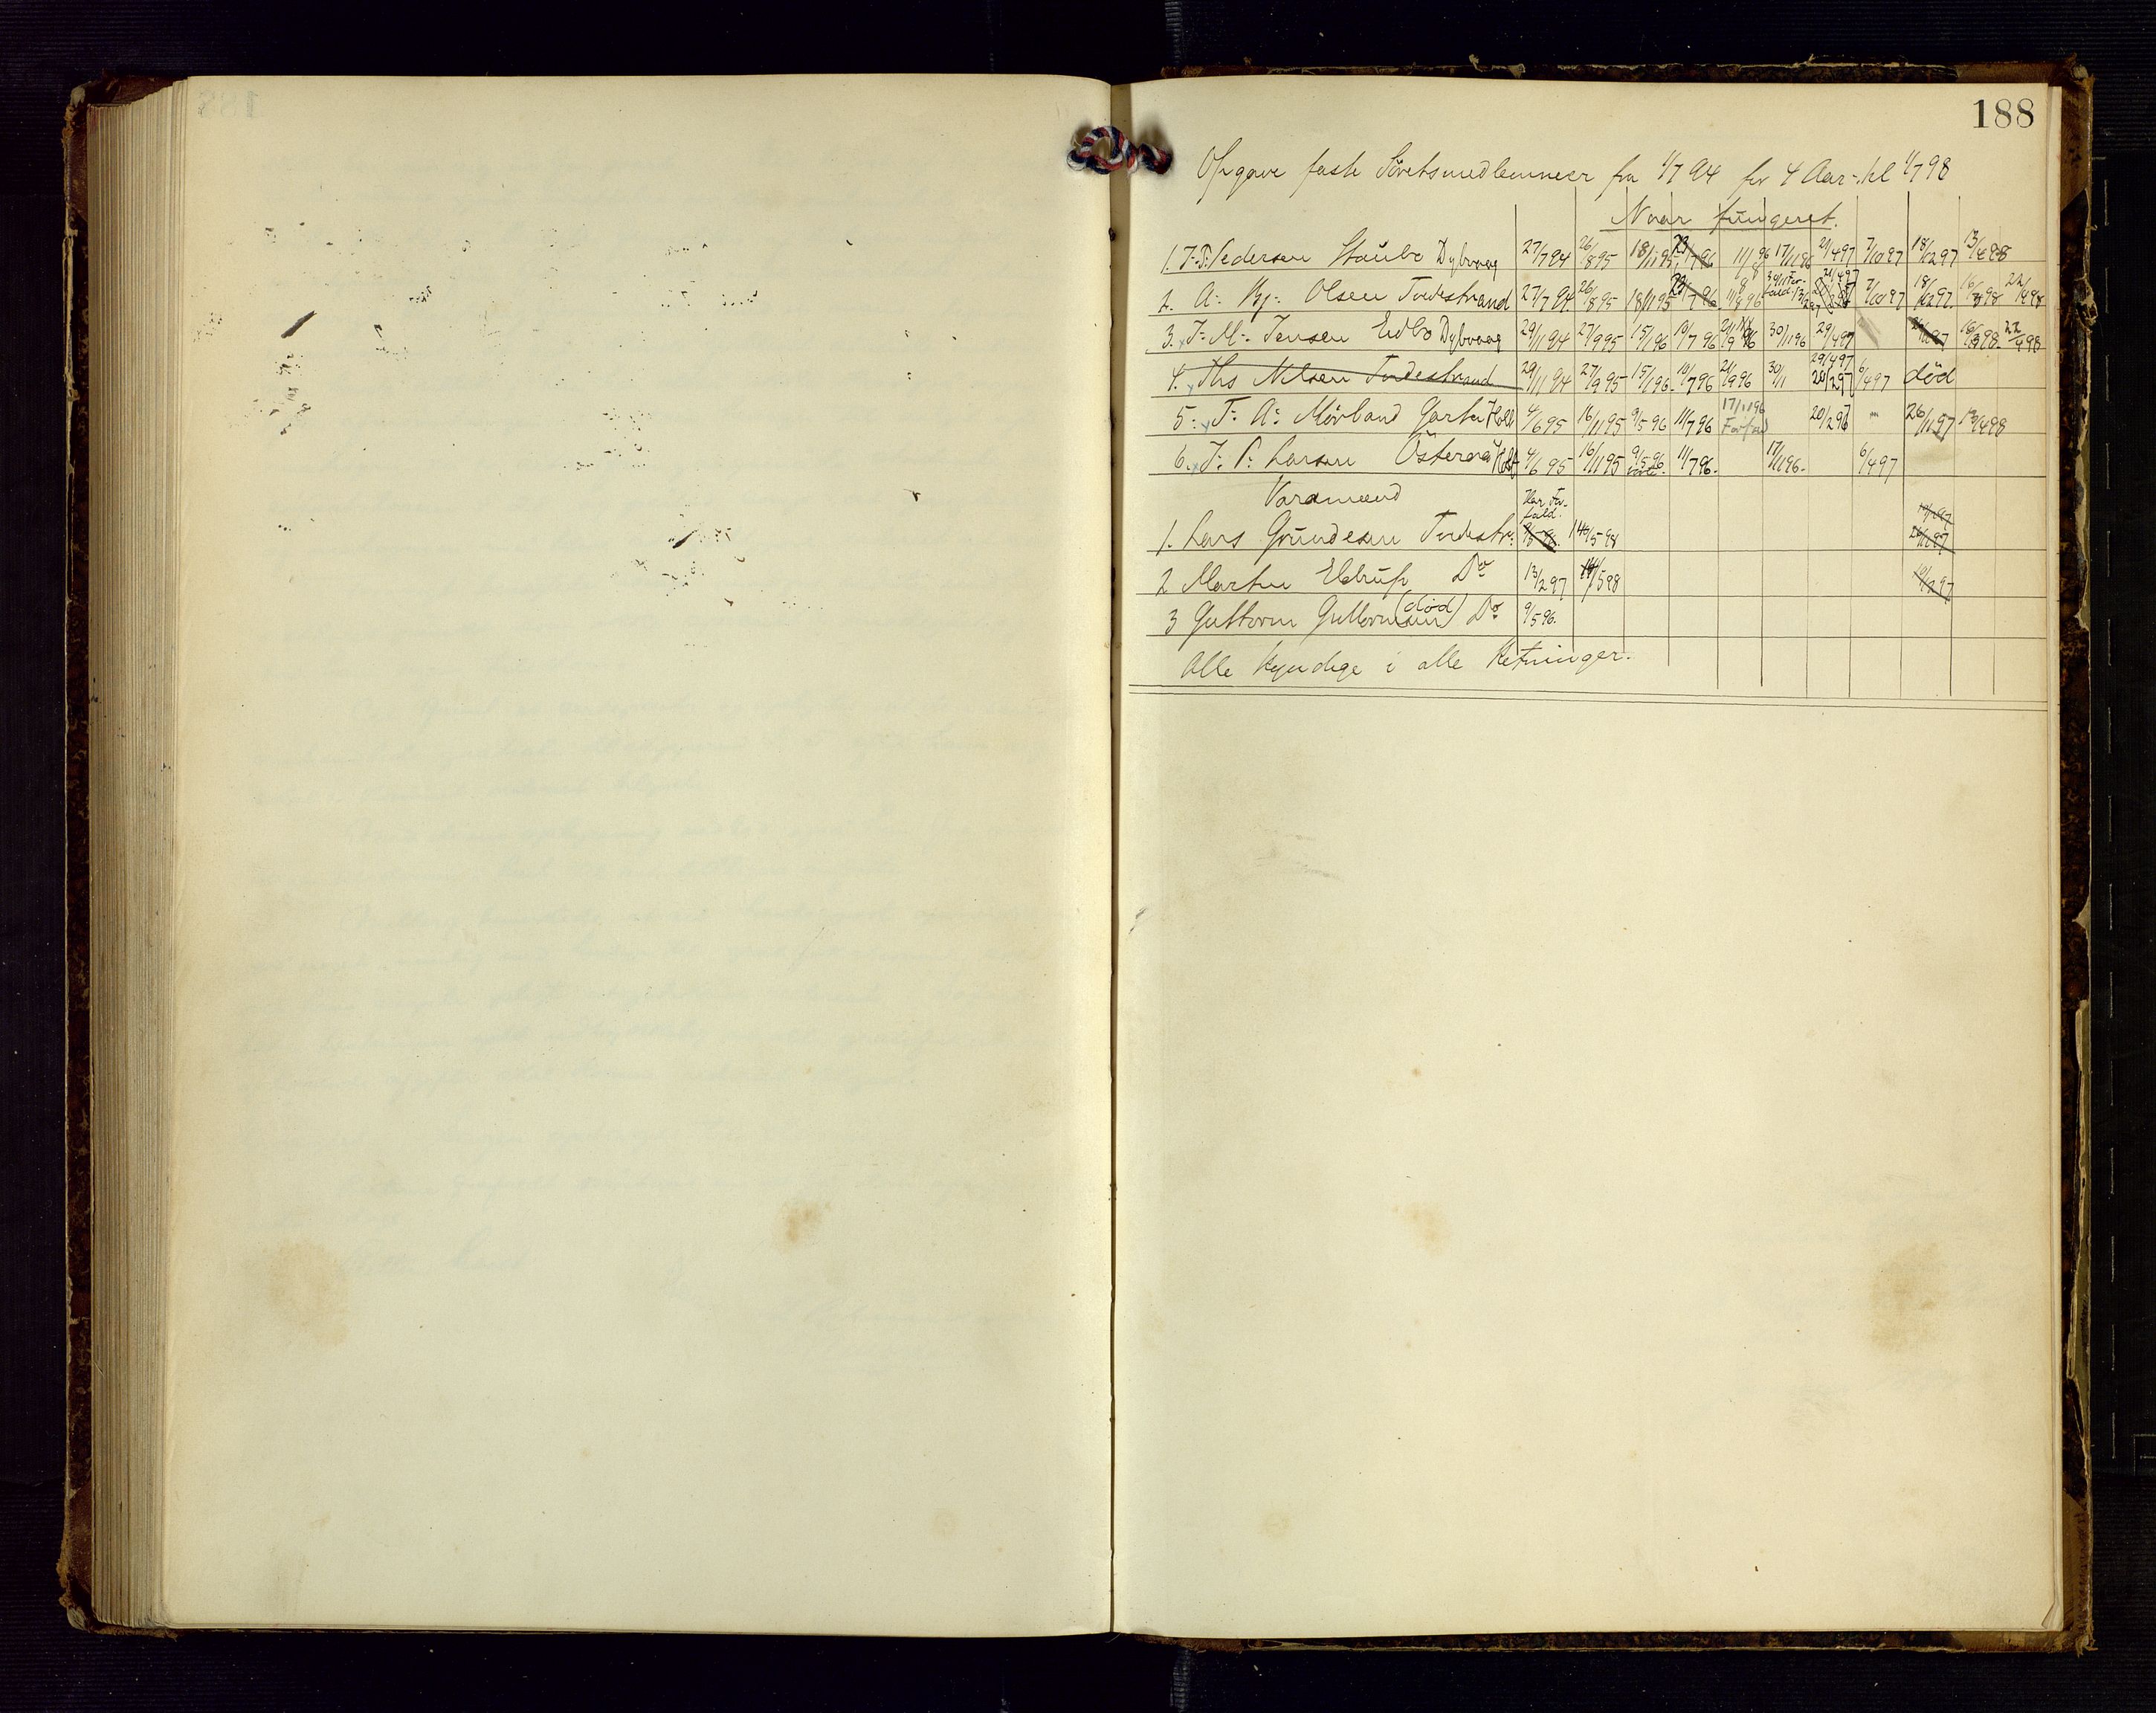 188
Opgave faste Söretsmedlemmer fra 1/7 94 for 4 Aar - til 1/7 98
Naar fungeret.
1. Pedersen Staubo Dybvaag 27/7 94 26/8 95 18/11 95 11/8 96 17/11 96 21/4 97 7/10 97 18/12 97
2. A: Kj: Olsen Tvedestrand 27/7 94 26/8 95 18/11 95 11/8 96 21/4 97 7/10 97 18/12 97 16/3 98 22/4 98
3. J: M: Jensen Eidbo Dybvaag 29/11 94 27/9 95 15/1 96 10/7 96 30/11 96 29/4 97 16/3 98 22/4 98
4. Ths Nilsen Tvedestrand 29/11 94 27/9 95 15/1 96 10/7 96 21/9 96 30/11 29/4 97 20/2 97 6/4 97 död
5: T: A: Mörland Garta Holt 4/6 95 16/11 95 9/5 96 11/7 96 17/11 96 Forfald 20/2 96 " 26/11 97 13/4 98
6. J: P: Larsen Österaa Holt 4/6 95 16/11 95 9/5 96 11/7 96. 17/11 96. 6/4 97
Varamænd
1. Lars Grundesen Tvedestr: Har Forfald. 14/5 98 26/11 97
2 Martin Eldrup Do 13/2 97 14/5 98
3 Guttorm Guttormsen (död) Do 9/5 96.
Alle kyndige i alle Retninger.